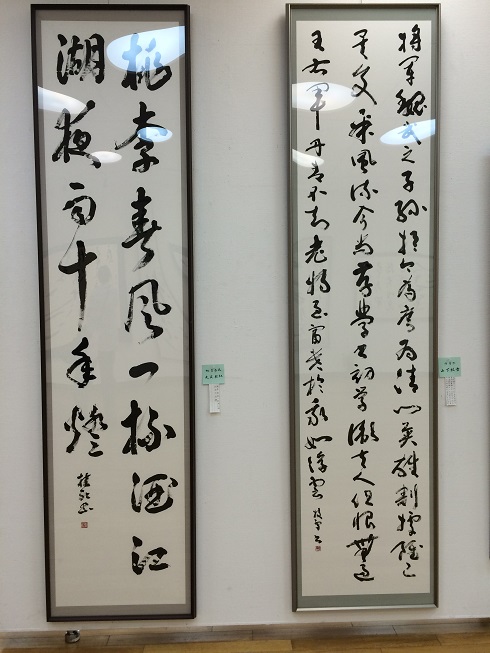 將軍魏武之子孫於今為庶為清門英雄割據雖已
矣文采風流今尚存學書初學衛夫人但恨無過
王右軍丹青不知老將至富貴於我如浮雲
桃李春風一杯酒江
湖夜雨十年燈